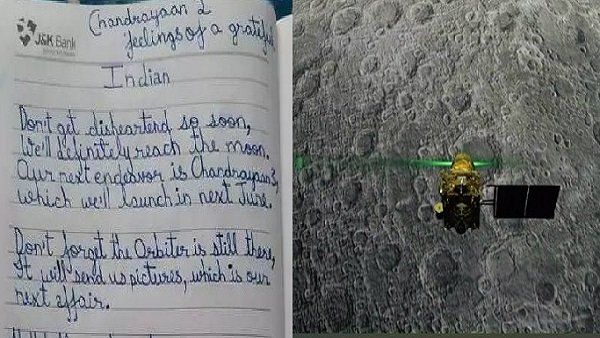 Chandrayaan 2
J&K Bank
feelings of a grateful
Indian
Don't get disheartend so soon,
We'll definitely reach the moon.
Our next endeavor is Chandrayaan3,
which we'll launch in next June.
Don't forget the Orbiter is still there,
It will send us pictures, which is our
next affair.